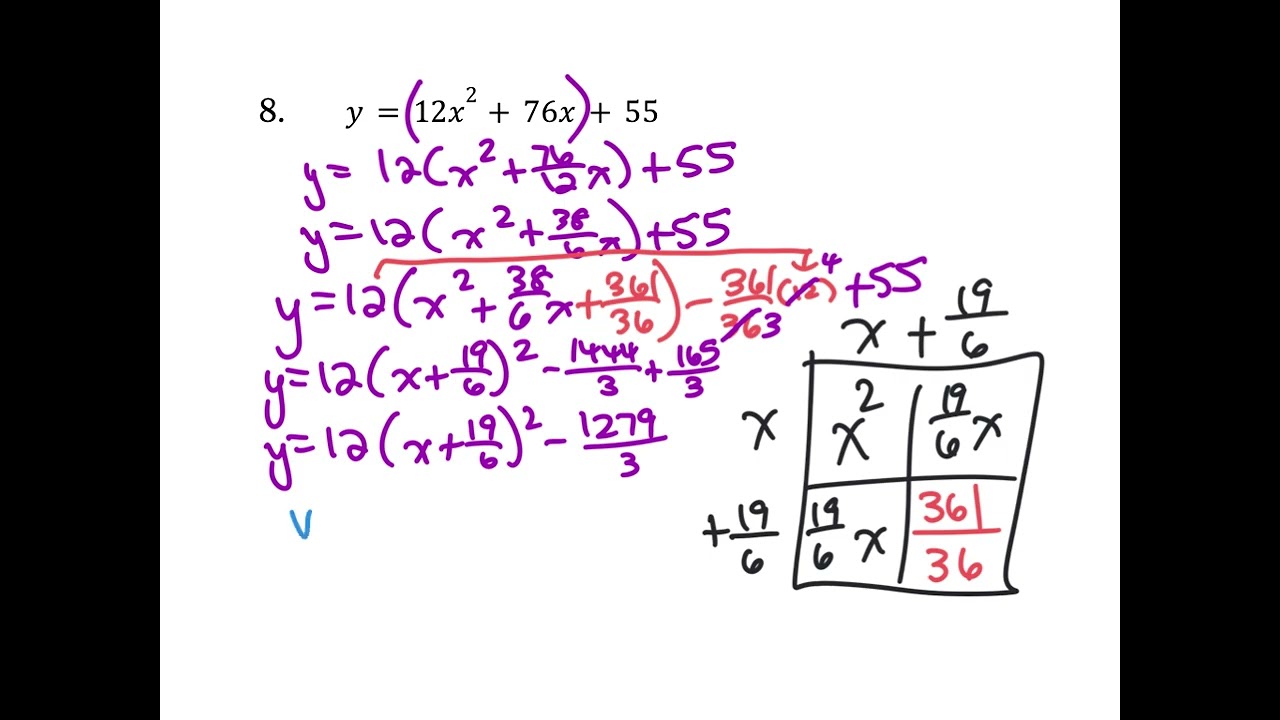 8. y = (12x² + 76x) + 55
y = 12(x² + 76/12 x) + 55
y = 12(x² + 38/6 x) + 55
y = 12(x² + 38/6 x + 361/36) - 361/36 (12) 4 3 + 55
y = 12(x + 19/6)² - 1444/3 + 165/3
y = 12(x + 19/6)² - 1279/3
V
x + 19/6
x x² 19/6 x
+ 19/6 19/6 x 361/36